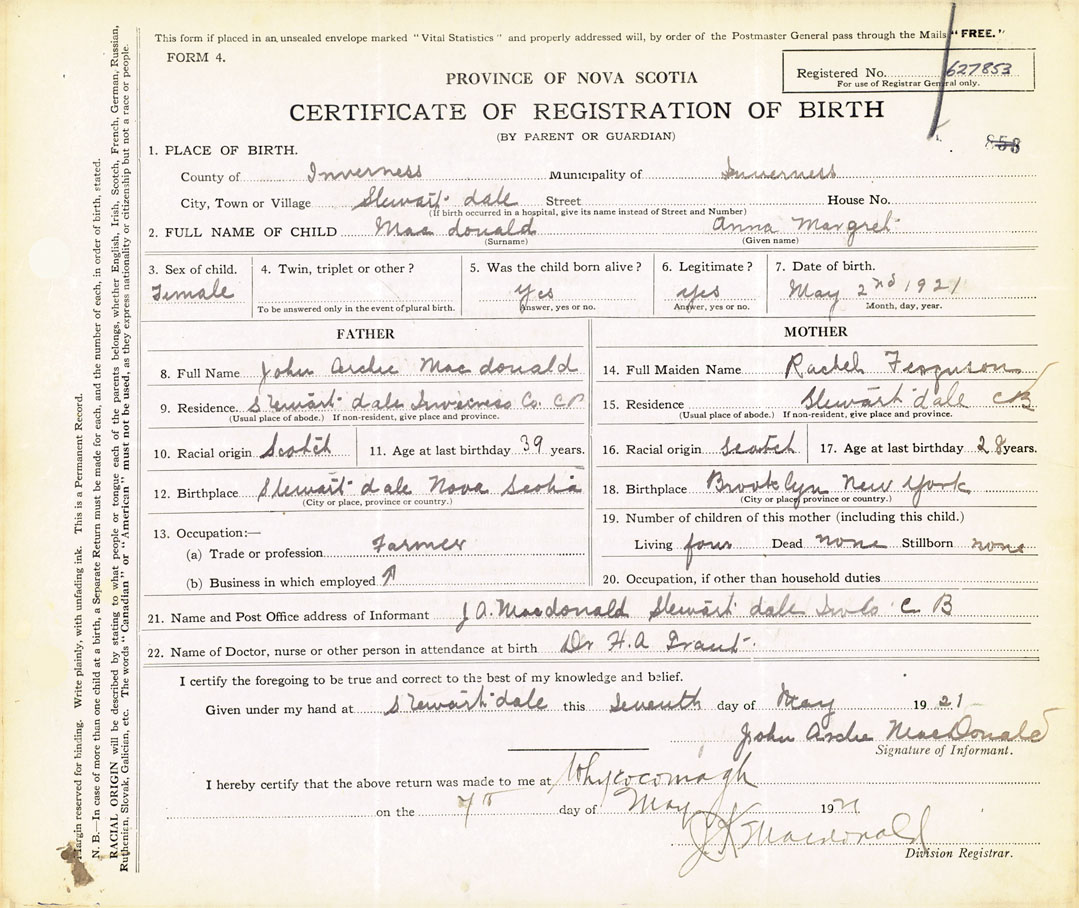 This form if placed in an unsealed envelope marked "Vital Statistics" and properly addressed will, by order of the Postmaster General pass through the Mails "FREE."
FORM 4.
Registered No. 627853
For use of Registrar General only.
PROVINCE OF NOVA SCOTIA
CERTIFICATE OF REGISTRATION OF BIRTH
(BY PARENT OR GUARDIAN)
858
1. PLACE OF BIRTH.
County of Inverness Municipality of Inverness
City, Town or Village Stewart dale Street House No.
(If birth occurred in a hospital, give its name instead of Street and Number)
2. FULL NAME OF CHILD Mac donald Anna Margret
(Surname) (Given name)
3. Sex of child. 4. Twin, triplet or other? 5. Was the child born alive? 6. Legitimate? 7. Date of birth.
Female yes yes May 2nd 1921
To be answered only in the event of plural birth. Answer, yes or no. Answer, yes or no. Month, day, year.
FATHER
8. Full Name John Archie Mac donald
9. Residence. Stewart dale Inverness Co. C B
(Usual place of abode.) If non-resident, give place and province.
10. Racial origin Scotch 11. Age at last birthday 39 years.
12. Birthplace Stewart dale Nova Scotia
(City or place, province or country.)
13. Occupation:—
(a) Trade or profession Farmer
(b) Business in which employed
MOTHER
14. Full Maiden Name Rachel Ferguson
15. Residence Stewart dale C B
(Usual place of abode.) If non-resident, give place and province.
16. Racial origin Scotch 17. Age at last birthday 28 years.
18. Birthplace Brooklyn New York
(City or place, province or country.)
19. Number of children of this mother (including this child.)
Living four Dead none Stillborn none
20. Occupation, if other than household duties
21. Name and Post Office address of Informant J A. Macdonald Stewart dale Inv Co C B
22. Name of Doctor, nurse or other person in attendance at birth Dr H. A Grant.
I certify the foregoing to be true and correct to the best of my knowledge and belief.
Given under my hand at Stewart dale this Seventh day of May 1921
John Archie MacDonald
Signature of Informant.
I hereby certify that the above return was made to me at Whycocomagh
on the 7th day of May 1921
J K Macdonald
Division Registrar.
Margin reserved for binding. Write plainly, with unfading ink. This is a Permanent Record.
N. B.—In case of more than one child at a birth, a Separate Return must be made for each, and the number of each, in order of birth, stated.
RACIAL ORIGIN will be described by stating to what people or tongue each of the parents belongs, whether English, Irish, Scotch, French, German, Russian,
Ruthenian, Slovak, Galician, etc. The words "Canadian" or "American" must not be used, as they express nationality or citizenship but not a race or people.